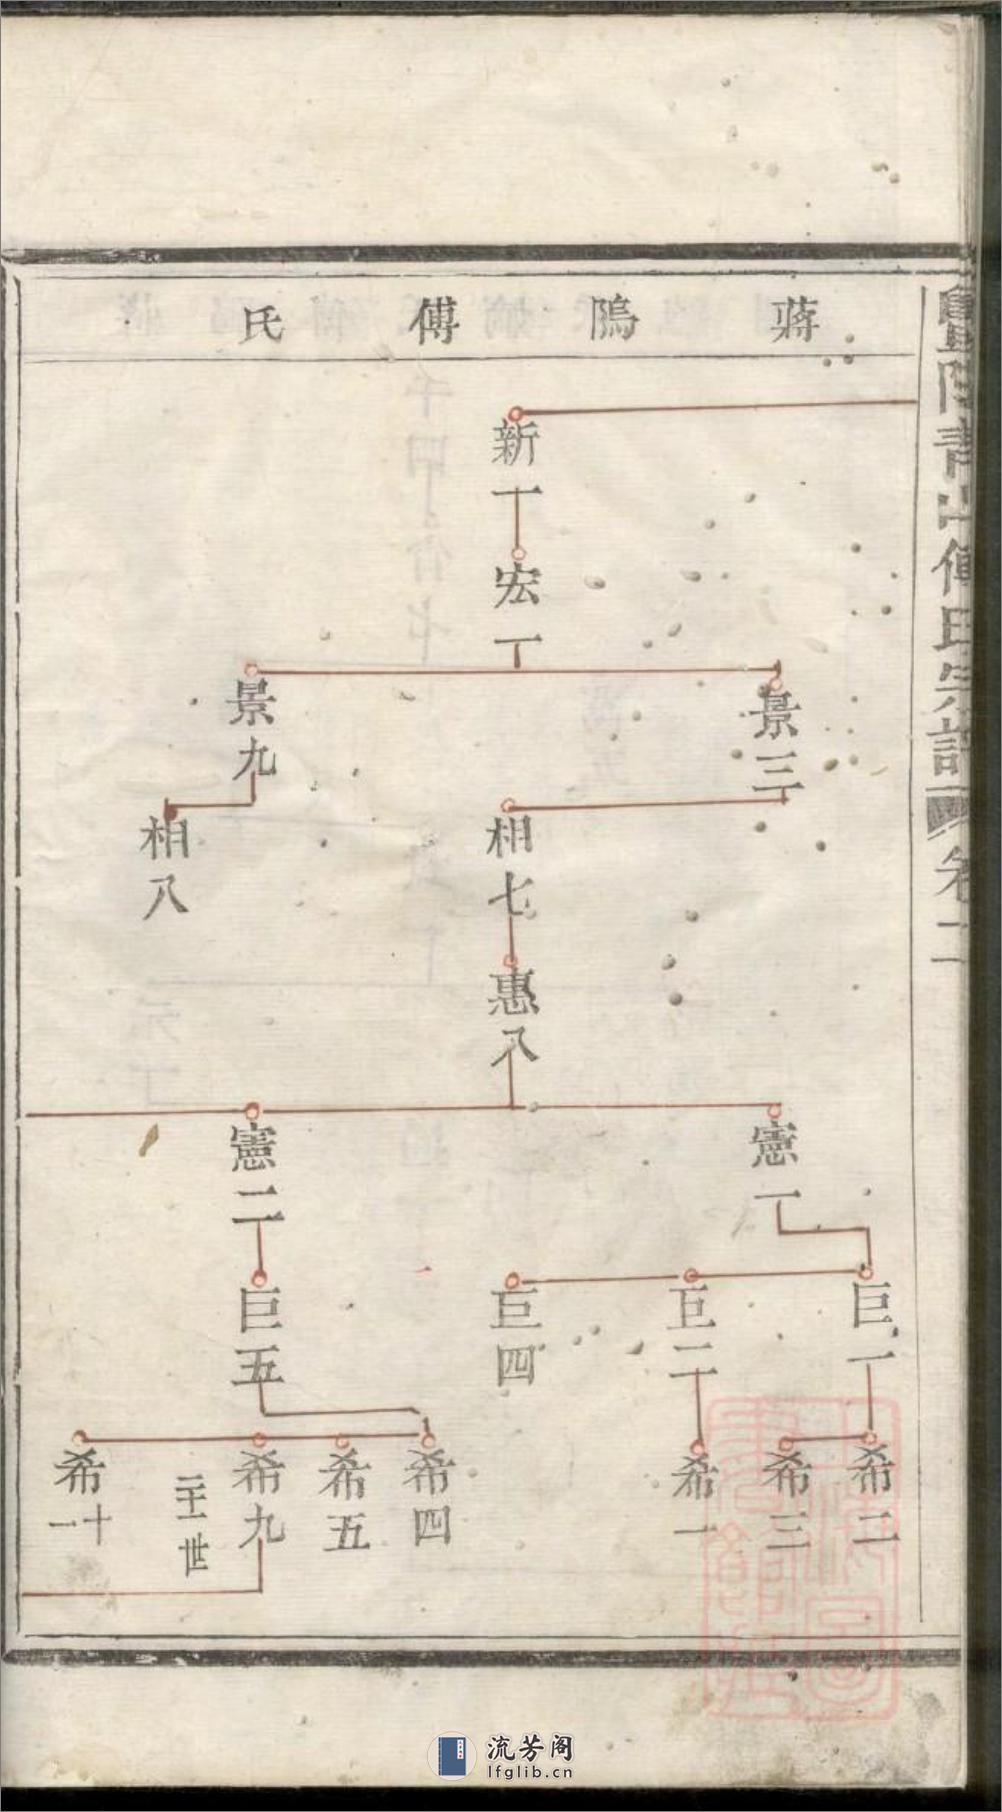 蔣塢傅氏
新一
宏一
景三
景九
相七
相八
惠八
憲一
憲二
巨一
巨二
巨四
巨五
希二
希三
希一
希四
希五
希九
希十一
二十一世
傅氏宗譜
卷二
流芳阁
lfglib.cn